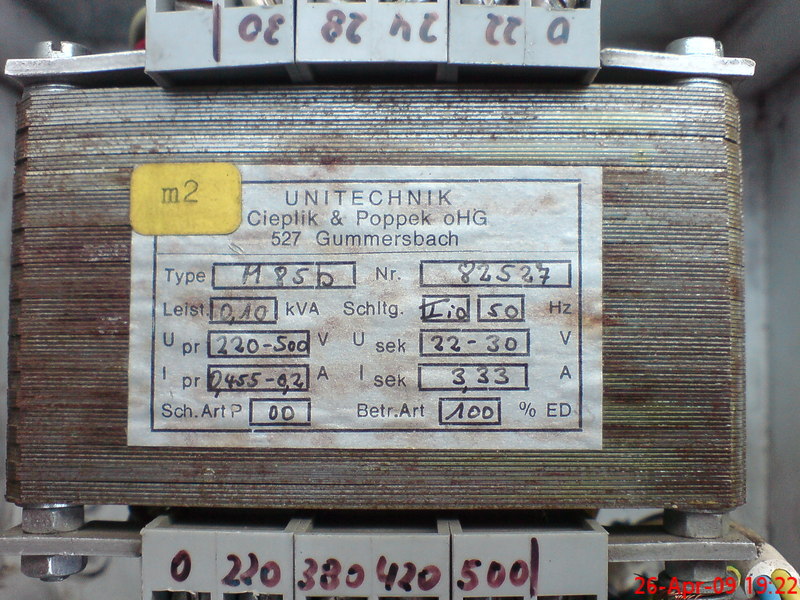 30 28 24 22 0
m2
UNITECHNIK
Cieplik & Poppek oHG
527 Gummersbach
Type M 85b Nr. 82527
Leist. 0,10 kVA Schltg. Iio 50 Hz
U pr 220-500 V U sek 22-30 V
I pr 0,455-0,2 A I sek 3,33 A
Sch.Art P 00 Betr.Art 100 % ED
0 220 380 420 500
26-Apr-09 19:22